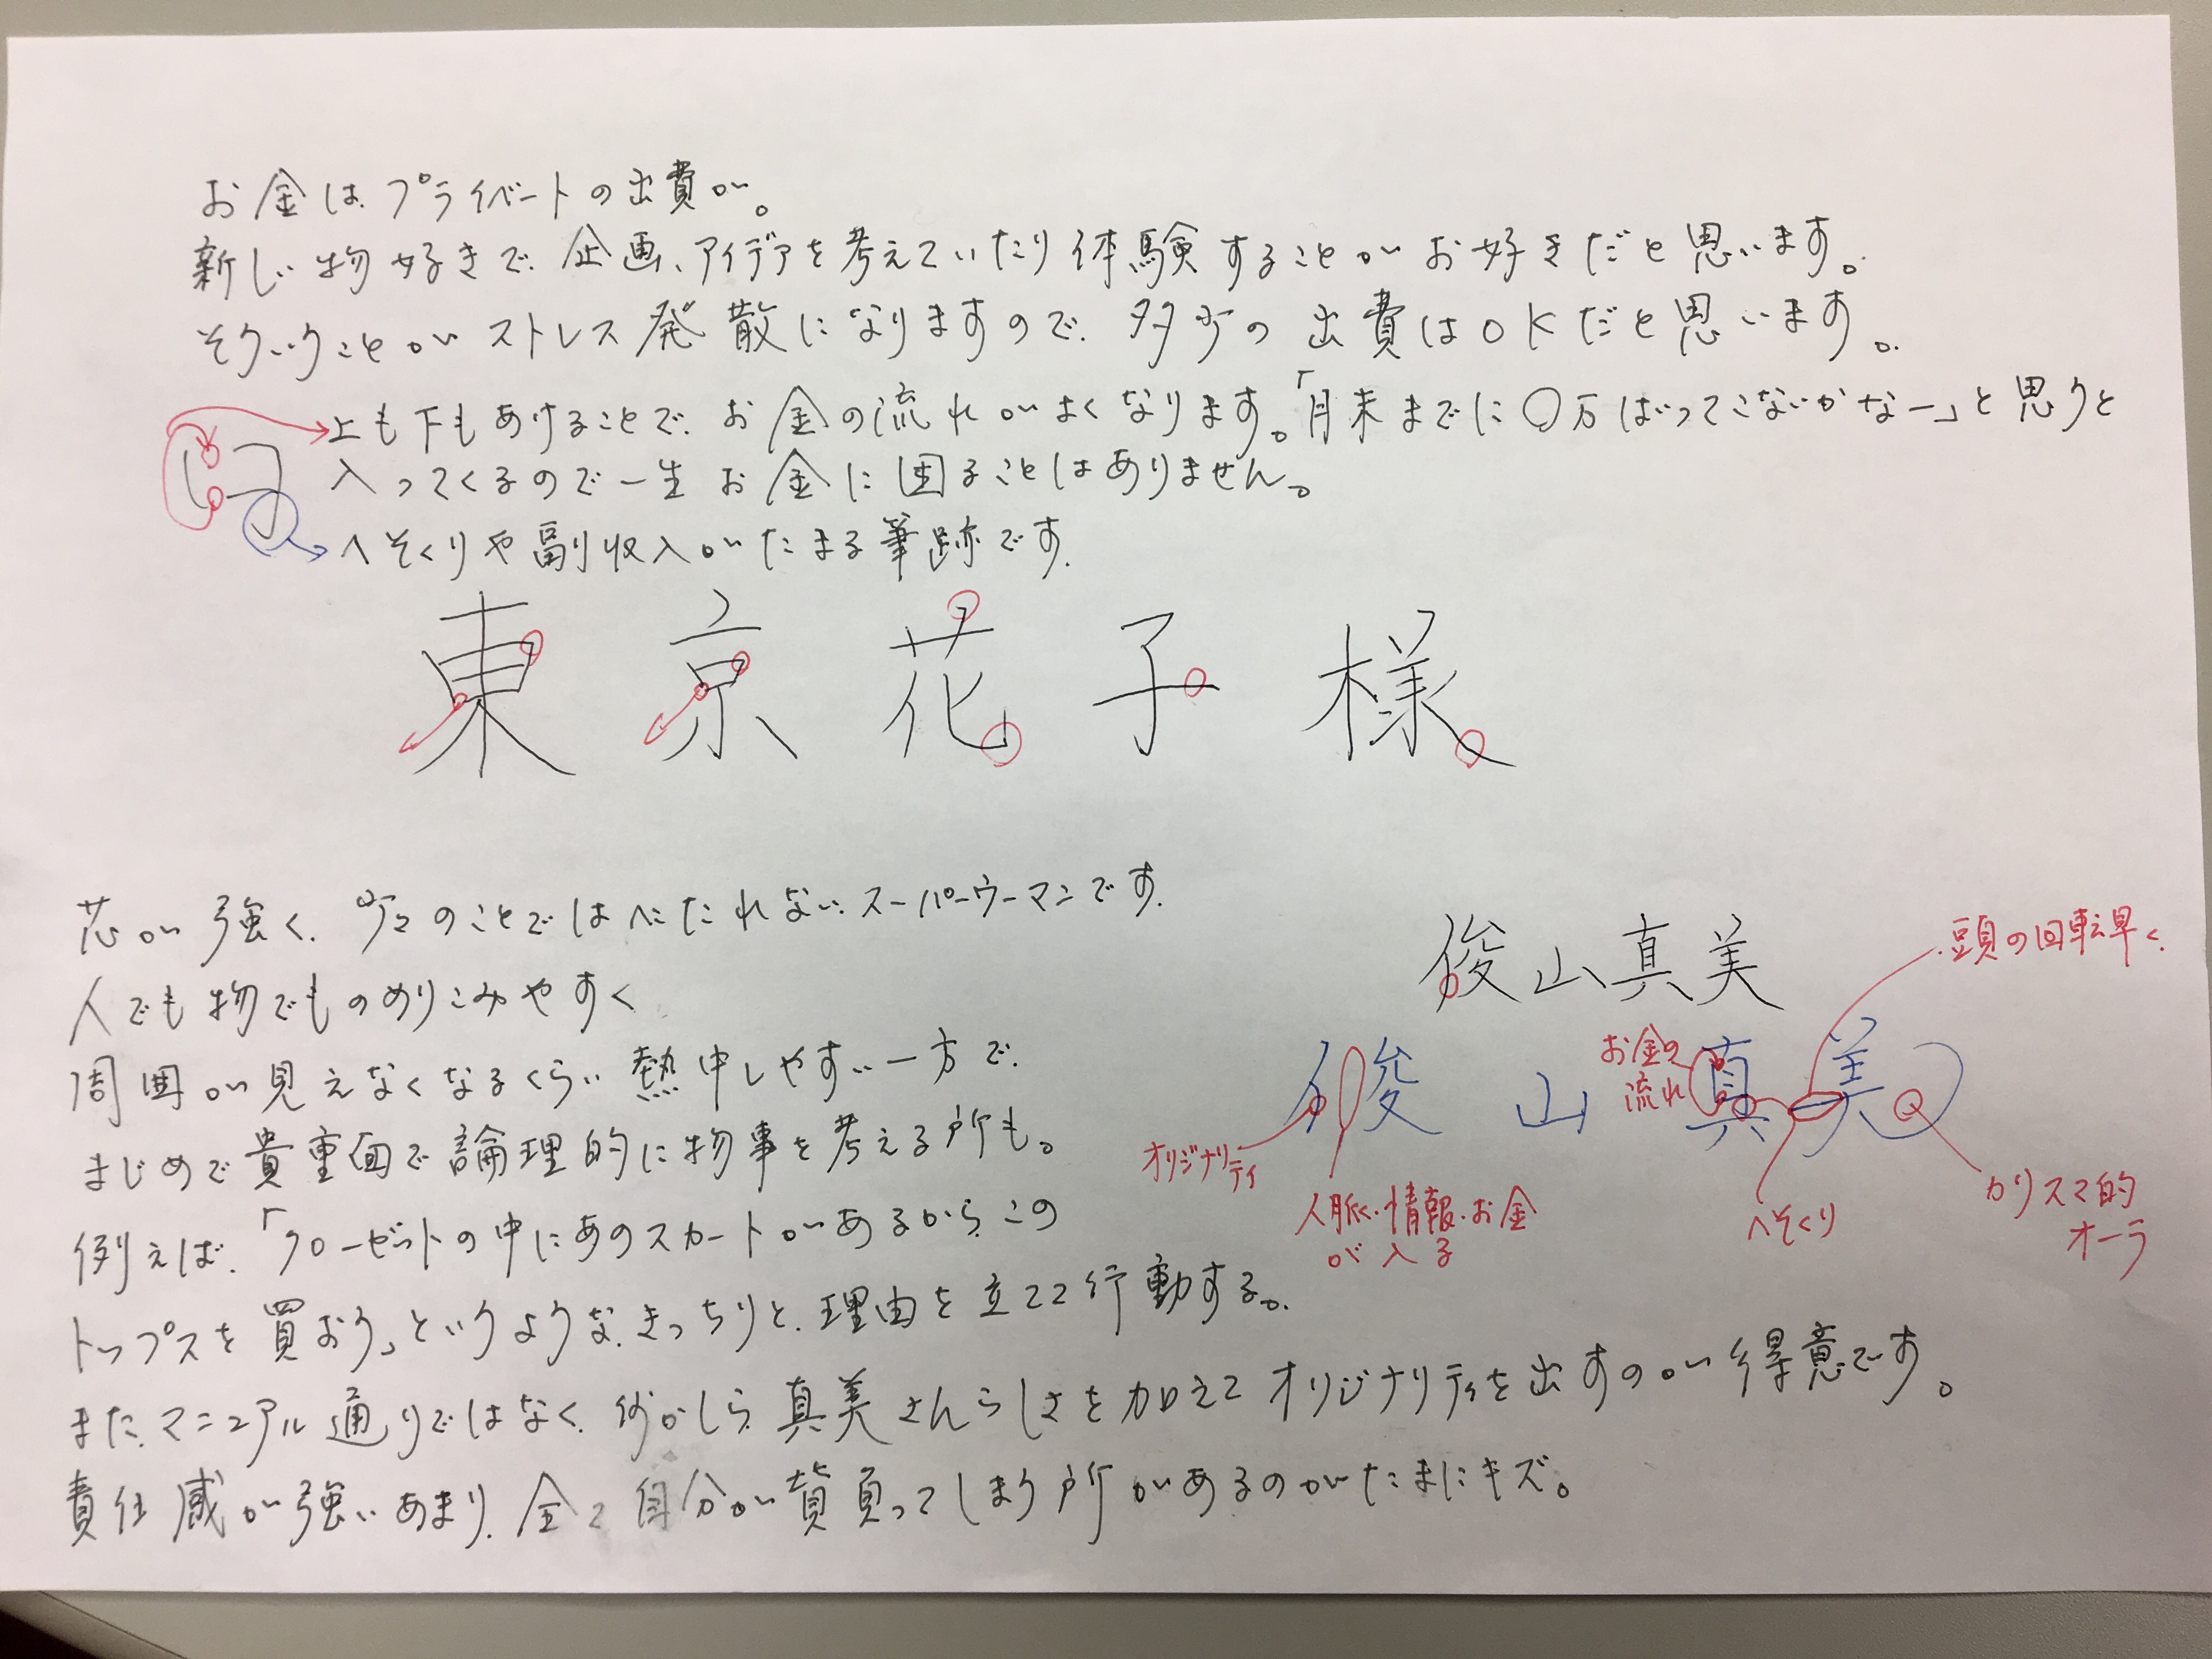 お金はプライベートの出費が。
新しい物好きで、企画、アイデアを考えていたり体験することがお好きだと思います。
そういうことがストレス発散になりますので、多少の出費はOKだと思います。
上も下もあけることで、お金の流れがよくなります。「月末までに〇万ばってこないかなー」と思うと
入ってくるので一生お金に困ることはありません。
へそくりや副収入がたまる筆跡です。
東京花子様
芯が強く、少々のことではへこたれないスーパーウーマンです。
人でも物でものめりこみやすく
周囲が見えなくなるくらい熱中しやすい一方で、
まじめで貴重面で論理的に物事を考える所も。
例えば、「クローゼットの中にあのスカートがあるからこの
トップスを買おう」というような、きっちりと、理由を立てて行動する。
また、マニュアル通りではなく、何かしら真美さんらしさを加えてオリジナリティを出すのが得意です。
責任感が強いあまり、全て自分が背負ってしまう所があるのがたまにキズ。
俊山真美
頭の回転早く、
お金の
流れ
俊山真美
オリジナリティ
人脈・情報・お金
が入る
へそくり
カリスマ的
オーラ